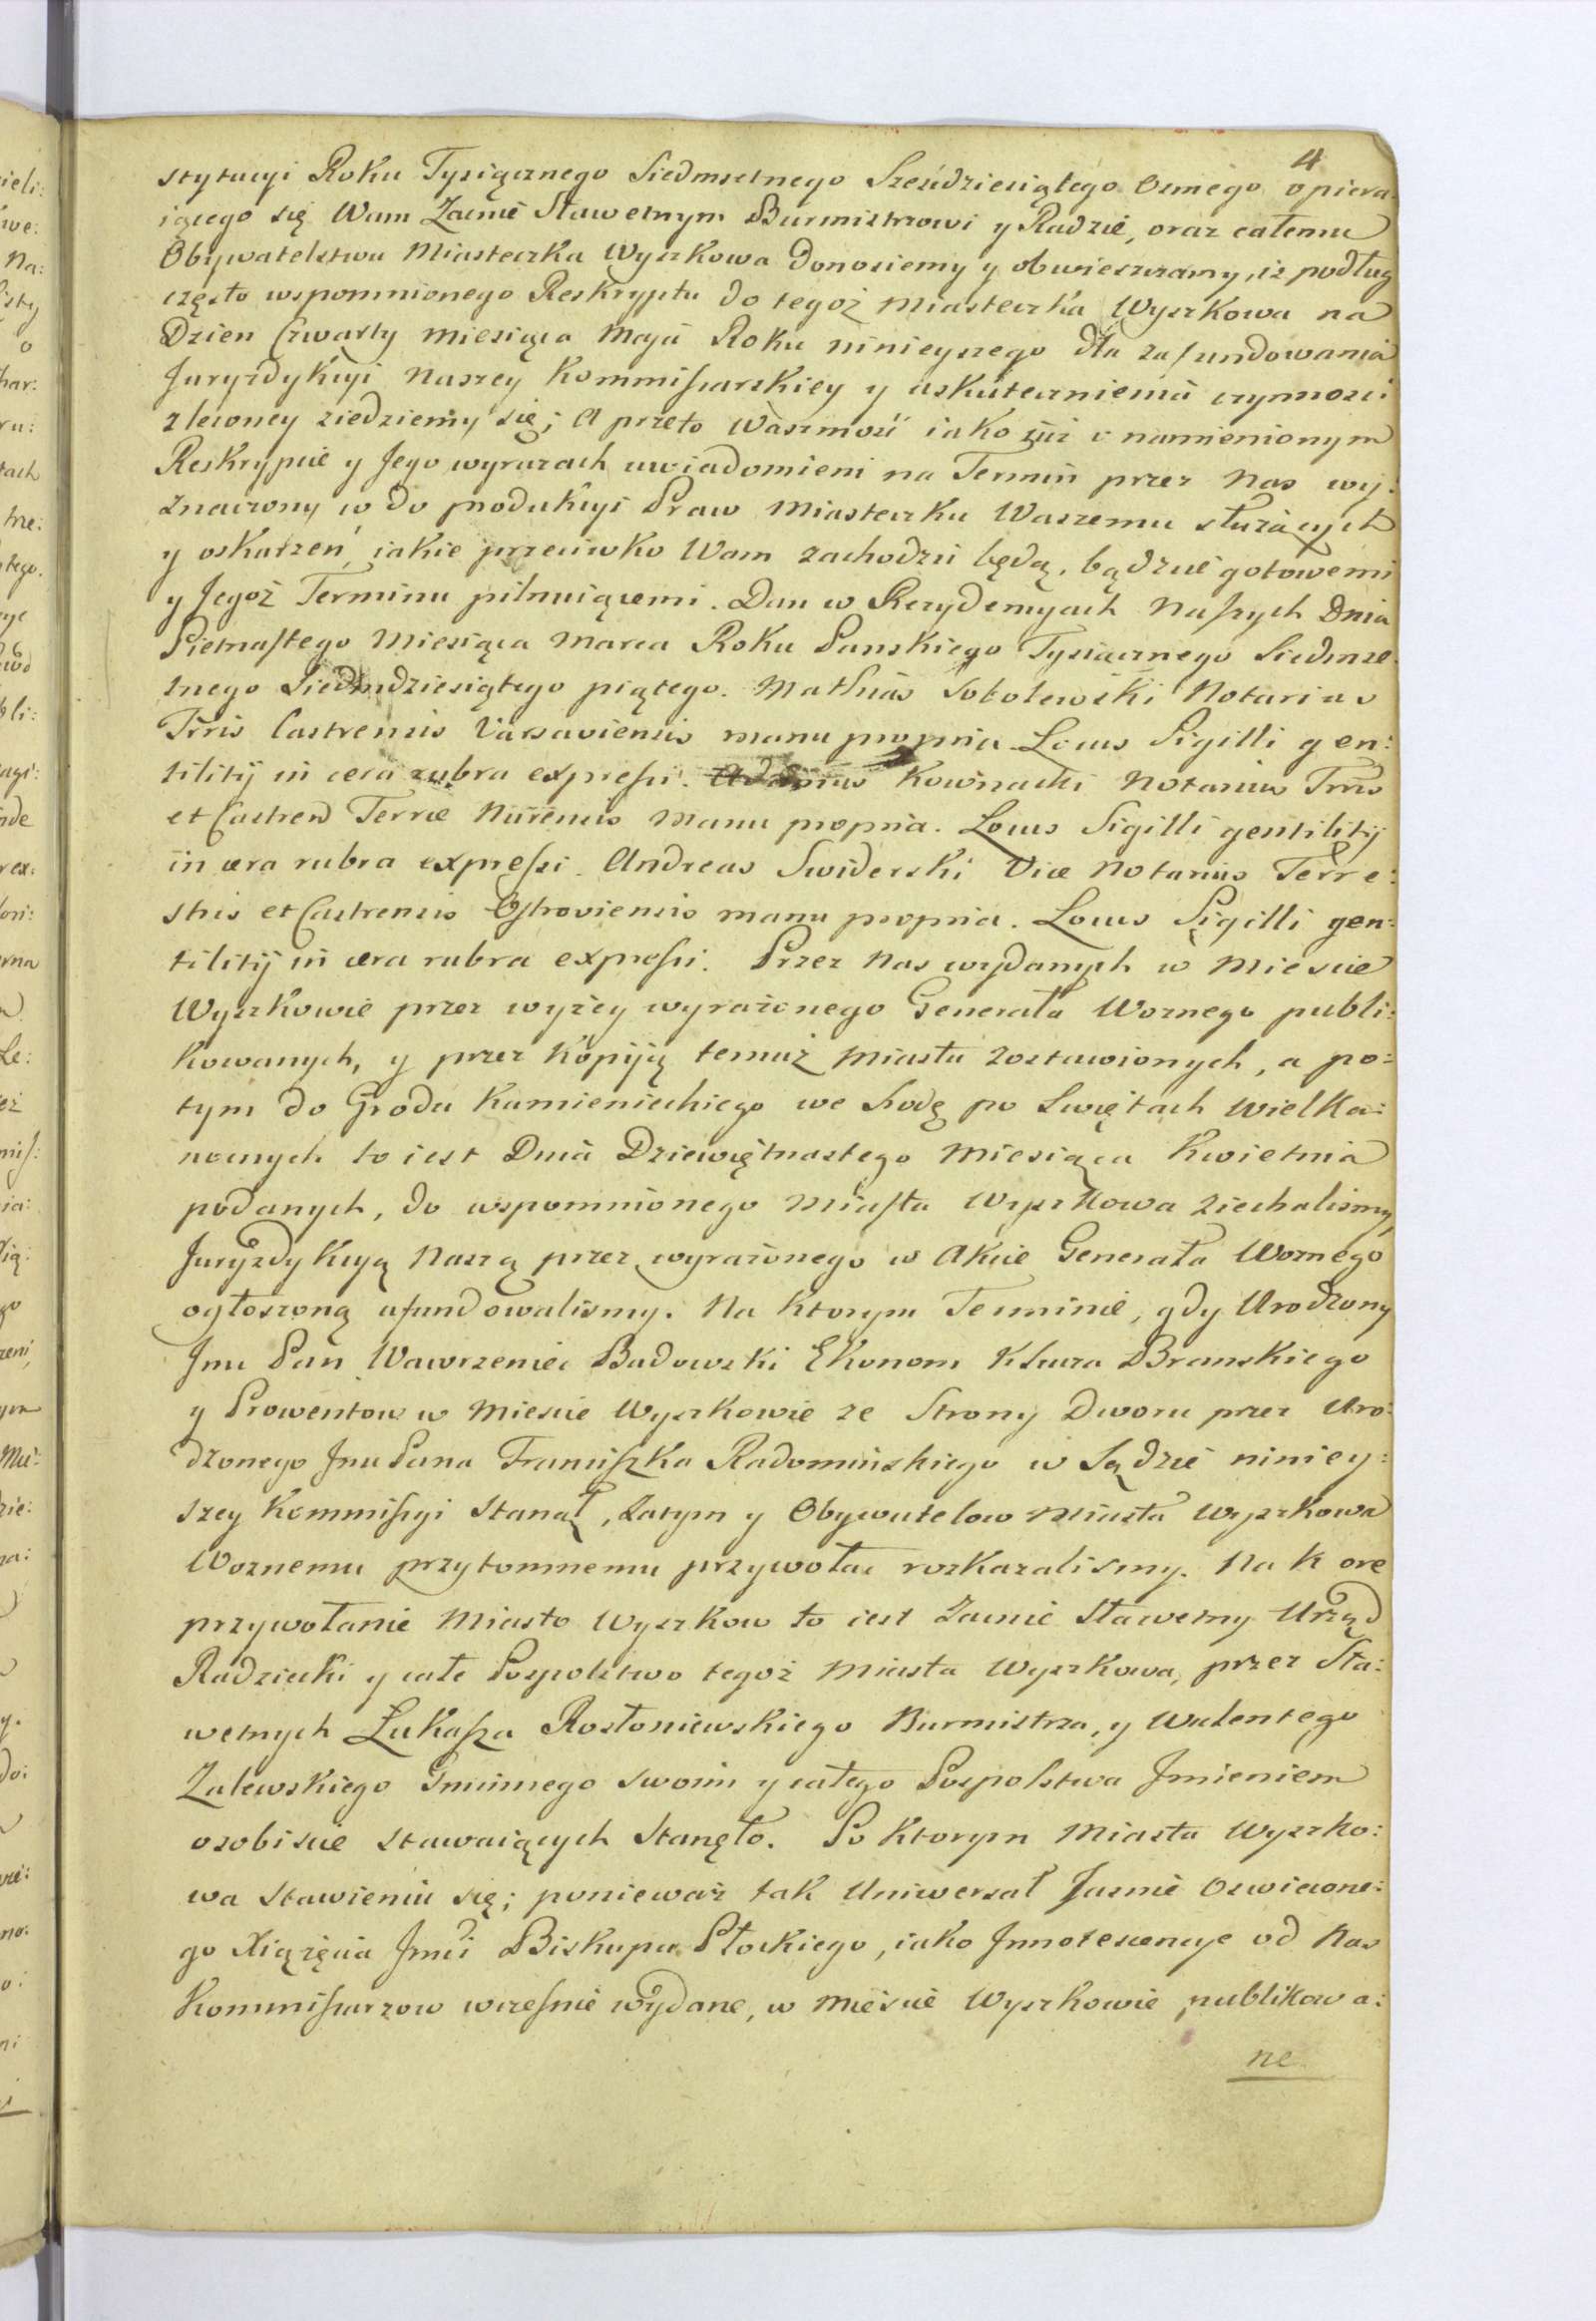 4
stytucyi Roku Tysiącznego Siedmsetnego Sześćdziesiątego Osmego opiera
iącego się Wam Zacnie Sławetnym Burmistrzowi y Radzie, oraz całemu
Obywatelstwu Miasteczka Wyszkowa donosiemy y obwieszczamy, iż podług
często wspomnionego Reskryptu do tegoż Miasteczka Wyszkowa na
Dzien Czwarty Miesiąca Maja Roku ninieyszego dla zafundowania
Juryzdykcyi Naszey Kommissarskiey y uskutecznienia czynnosci
zleconey ziedziemy się; A przeto Waszmość iako już o namienionym
Reskrypcie y Jego wyrazach uwiadomieni na Termin przez Nas wy:
znaczony do produkcyi Praw Miasteczku Waszemu służących
y oskarzeń, iakie przeciwko Wam zachodzić będą, bądźcie gotowemi
y Jegoż Terminu pilnuiącemi. Dan w Rezydencyach Naszych Dnia
Pietnastego Miesiąca Marca Roku Panskiego Tysiącznego Siedmse
tnego Siedmdziesiątego piątego. Mathias Sobolewski Notarius
Trris Castrensis Varsaviensis manu propria Locus Sigilli gen:
tilitij in cera rubra expressi. Adamus Kownacki Notarius Trris
et Castren Terræ Nurensis manu propria. Locus Sigilli gentilitij
in cera rubra expressi. Andreas Swiderski Vice Notarius Terre:
stris et Castrensis Ostroviensis manu propria. Locus Sigilli gen:
tilitij in cera rubra expressi. Przez Nas wydanych w Miescie
Wyszkowie przez wyżey wyrażonego Generała Woznego publi:
kowanych, y przez kopiją temuż Miastu zostawionych, a po:
tym do Grodu Kamienieckiego we srodę po Swiętach Wielka:
nocnych to iest Dnia Dziewiętnastego Miesiąca Kwietnia
podanych, do wspomnionego Miasta Wyszkowa ziechalismy,
Juryzdykcyą Naszą przez wyrażonego w Akcie Generała Woznego
ogłoszoną ufundowalismy. Na ktorym Terminie, gdy Urodzony
Jmc Pan Wawrzeniec Badowski Ekonom Klucza Branskiego
y Prowentow w Miescie Wyszkowie ze Strony Dworu przez Uro:
dzonego Jmc Pana Franciszka Radominskiego w Sądzie niniey:
szey Kommissyi Stanął, zatym y Obywatelow Miasta Wyszkowa
Woznemu przytomnemu przywołać rozkazalismy. Na k ore
przywołanie Miasto Wyszkow to iest Zacnie Sławetny Urząd
Radziecki y całe Pospolstwo tegoż Miasta Wyszkowa, przez Sła:
wetnych Łukasza Rosłoniewskiego Burmistrza, y Walentego
Zalewskiego Gminnego Swoim y całego Pospolstwa Jmieniem
osobiscie stawaiących Stanęło. Po ktorym Miasta Wyszko:
wa stawieniu się; ponieważ tak Uniwersał Jasnie Oswiecone:
go Xiążęcia Jmci Biskupa Płockiego, iako Jnnotescencye od Nas
Kommissarzow wczesnie wydane, w Miescie Wyszkowie publikowa:
ne